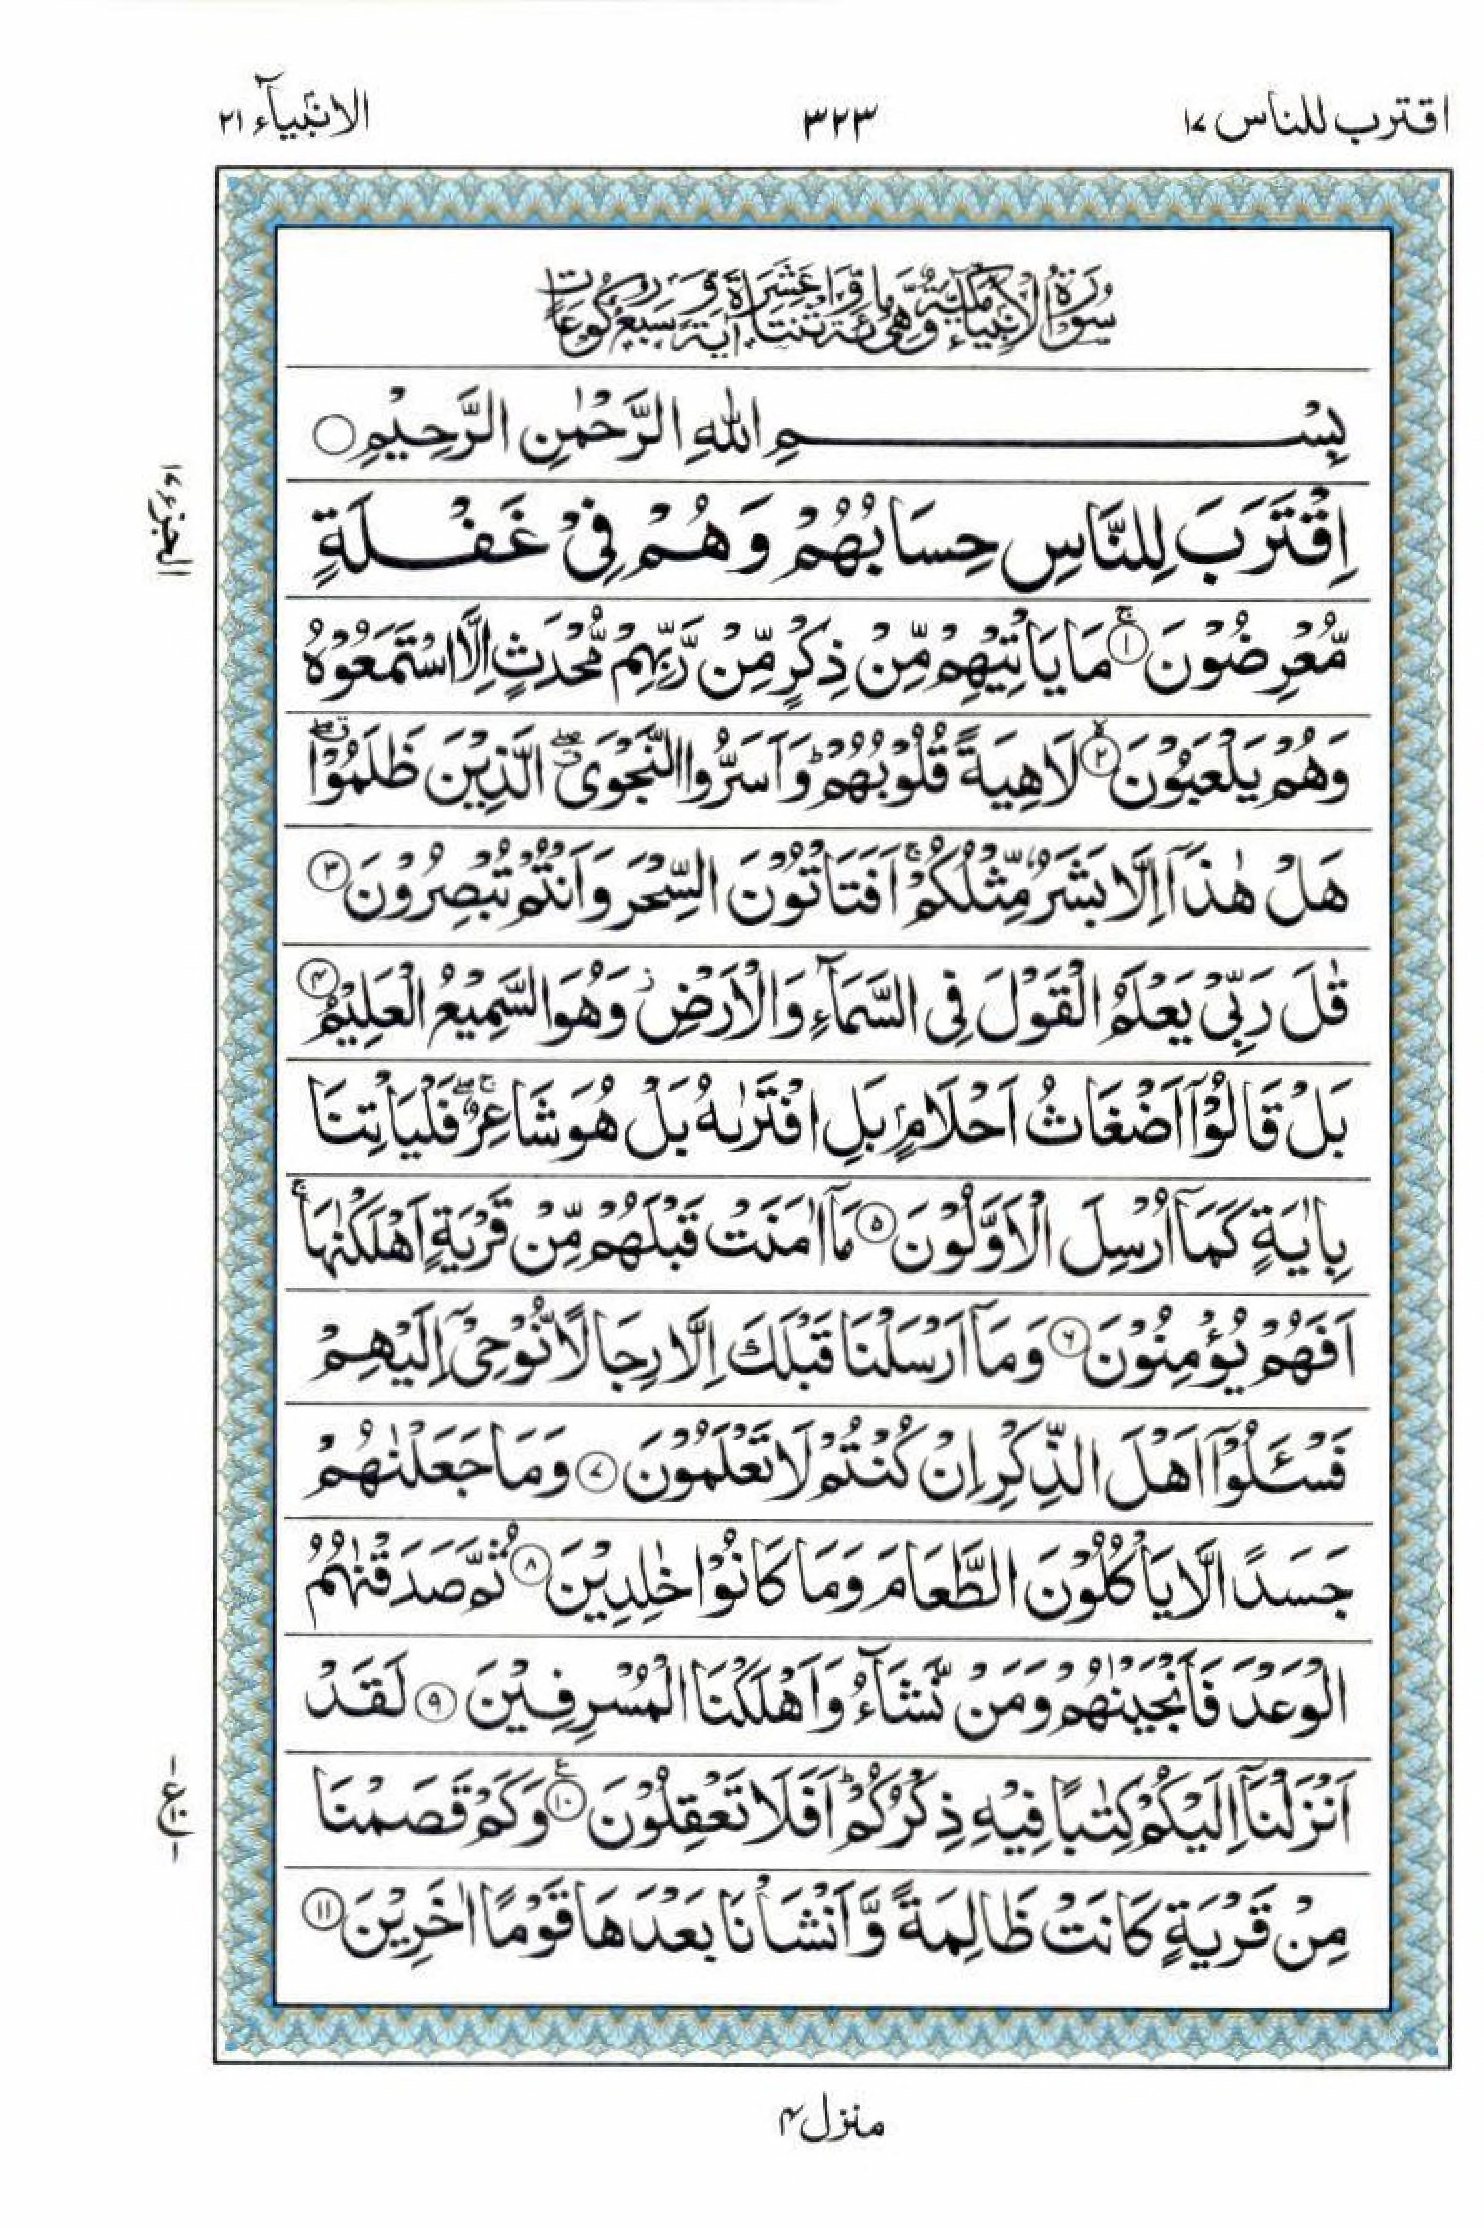 اقترب للناس ۱۷
۳۲۳
الانبیآء ۲۱
سُوْرَةُ الْاَنْبِيَآءِ مَكِّيَّةٌ وَّهِيَ مِائَةٌ وَاثْنَتَا عَشَرَةَ اٰيَةً وَّسَبْعُ رُكُوْعَاتٍ
بِسْـــــــمِ اللّٰهِ الرَّحْمٰنِ الرَّحِيْمِ ○
اِقْتَرَبَ لِلنَّاسِ حِسَابُهُمْ وَهُمْ فِيْ غَفْلَةٍ
مُّعْرِضُوْنَ ۚ ۱ مَا يَاْتِيْهِمْ مِّنْ ذِكْرٍ مِّنْ رَّبِّهِمْ مُّحْدَثٍ اِلَّا اسْتَمَعُوْهُ
وَهُمْ يَلْعَبُوْنَ ۙ ۲ لَاهِيَةً قُلُوْبُهُمْ ؕ وَاَسَرُّوا النَّجْوَى ۖ الَّذِيْنَ ظَلَمُوْا ۖ
هَلْ هٰذَآ اِلَّا بَشَرٌ مِّثْلُكُمْ ۚ اَفَتَاْتُوْنَ السِّحْرَ وَاَنْتُمْ تُبْصِرُوْنَ ۳
قٰلَ رَبِّيْ يَعْلَمُ الْقَوْلَ فِي السَّمَآءِ وَالْاَرْضِ ز وَهُوَ السَّمِيْعُ الْعَلِيْمُ ۴
بَلْ قَالُوْٓا اَضْغَاثُ اَحْلَامٍ بَلِ افْتَرٰىهُ بَلْ هُوَ شَاعِرٌ ۖۚ فَلْيَاْتِنَا
بِاٰيَةٍ كَمَآ اُرْسِلَ الْاَوَّلُوْنَ ۵ مَآ اٰمَنَتْ قَبْلَهُمْ مِّنْ قَرْيَةٍ اَهْلَكْنٰهَا ۚ
اَفَهُمْ يُؤْمِنُوْنَ ۶ وَمَآ اَرْسَلْنَا قَبْلَكَ اِلَّا رِجَالًا نُّوْحِيْٓ اِلَيْهِمْ
فَسْـَٔلُوْٓا اَهْلَ الذِّكْرِ اِنْ كُنْتُمْ لَا تَعْلَمُوْنَ ۷ وَمَا جَعَلْنٰهُمْ
جَسَدًا لَّا يَاْكُلُوْنَ الطَّعَامَ وَمَا كَانُوْا خٰلِدِيْنَ ۸ ثُمَّ صَدَقْنٰهُمُ
الْوَعْدَ فَاَنْجَيْنٰهُمْ وَمَنْ نَّشَآءُ وَاَهْلَكْنَا الْمُسْرِفِيْنَ ۹ لَقَدْ
اَنْزَلْنَآ اِلَيْكُمْ كِتٰبًا فِيْهِ ذِكْرُكُمْ ؕ اَفَلَا تَعْقِلُوْنَ ۱۰ ع وَكَمْ قَصَمْنَا
مِنْ قَرْيَةٍ كَانَتْ ظَالِمَةً وَّاَنْشَاْنَا بَعْدَهَا قَوْمًا اٰخَرِيْنَ ۱۱
الجزء ۱۷
ع
منزل ۴